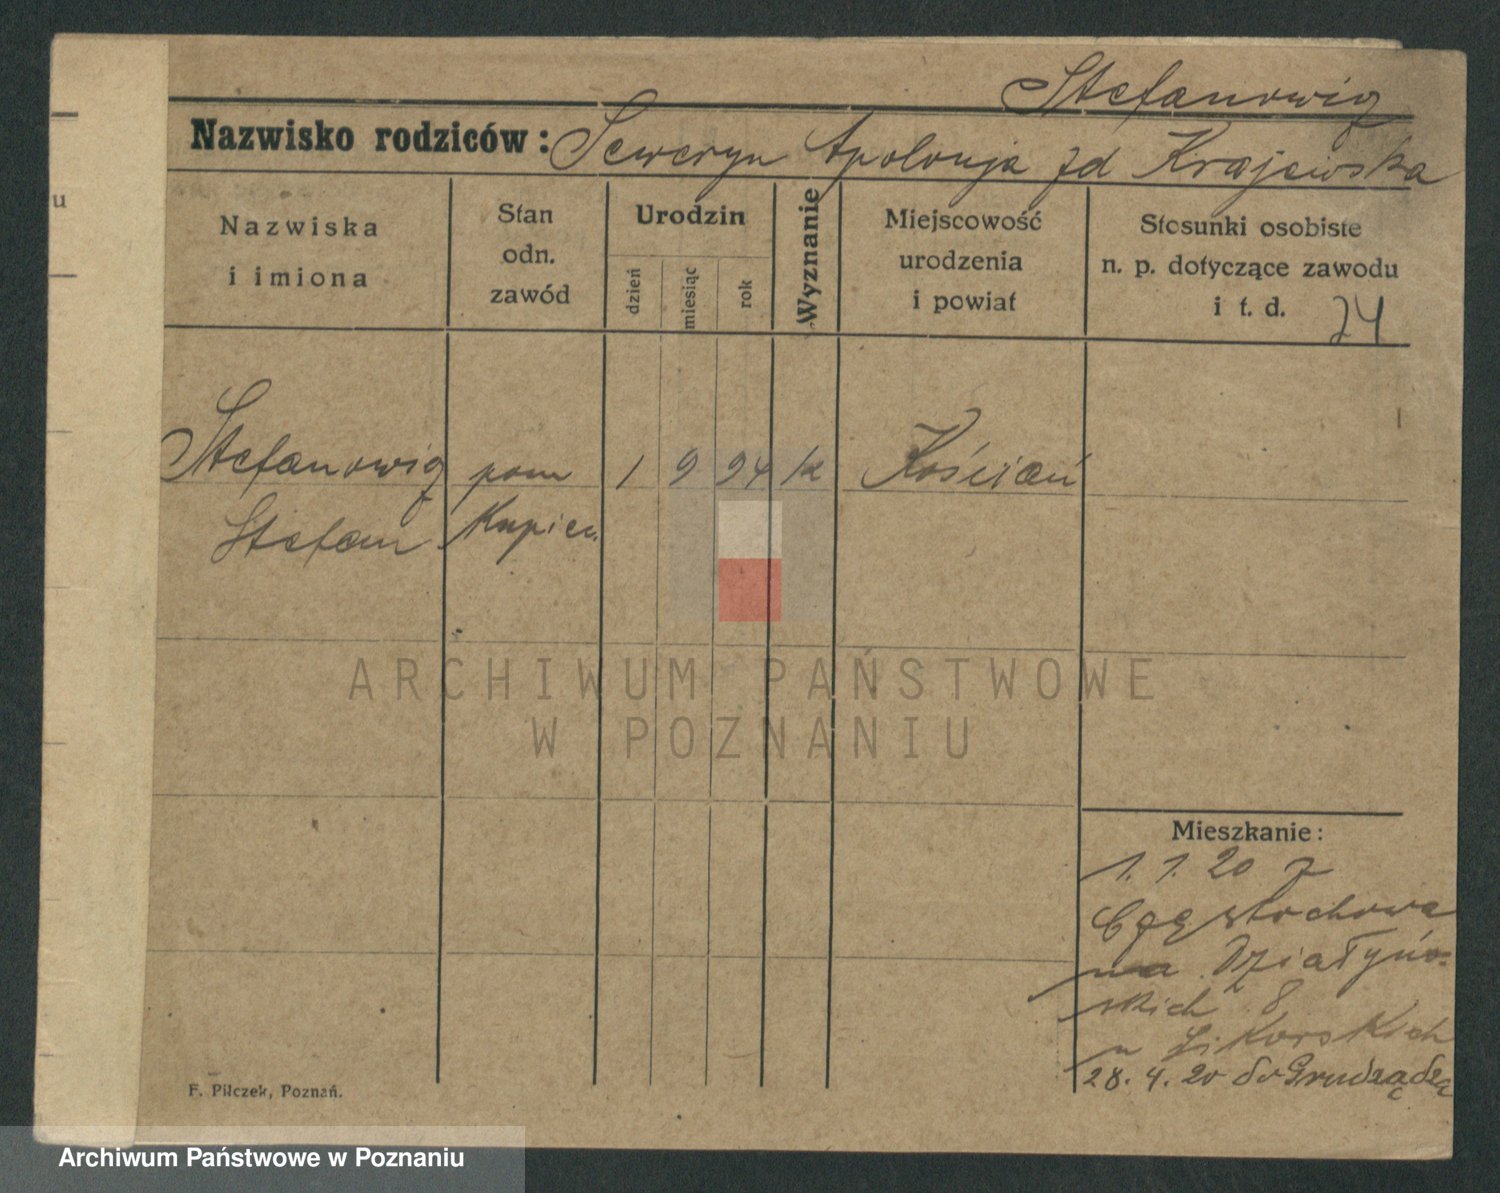 Stefanowicz
Nazwisko rodziców: Seweryn Apolonja zd Krajewska
u
Nazwiska
i imiona
Stan
odn.
zawód
Urodzin
dzień
miesiąc
rok
Wyznanie
Miejscowość
urodzenia
i powiat
Stosunki osobiste
n. p. dotyczące zawodu
i t. d.
24
Stefanowicz pom 1 9 94 k Kościan
Stefan Kupiec
ARCHIWUM PAŃSTWOWE
W POZNANIU
Mieszkanie:
1. 1. 20 z
Częstochowa
na Działyń-
skich 8
u Sikorskich
28. 4. 20 do Grudządza
F. Pilczek, Poznań.
Archiwum Państwowe w Poznaniu